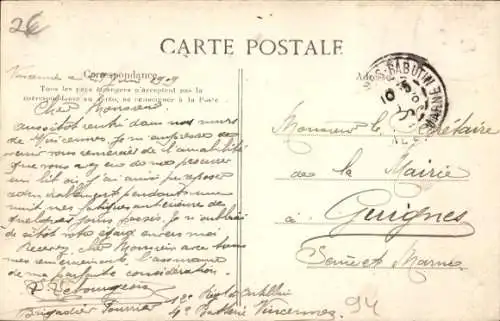 2€
CARTE POSTALE
Correspondance
Adresse
Tous les pays étrangers n'acceptent pas la
correspondance au recto, se renseigner à la Poste.
Vincennes 1909
Cher Monsieur
aussitôt rentré dans nos murs
de Vincennes, je m'empresse de
venir vous remercier de l'amabilité
que vous avez eu de me procurer
un lit où j'ai ainsi pu reposer
pendant une
nuit mes fatigues antérieures de
quelques jours passés, je n'oublierai
de sitôt votre égard envers moi
Recevez, cher Monsieur avec tous
mes remerciements, l'assurance
de ma parfaite considération.
Brigadier Fourrier
12e Rég. d'artillerie
4e Batterie Vincennes
Monsieur le Secrétaire
de la Mairie
à Guignes
Seine et Marne
94